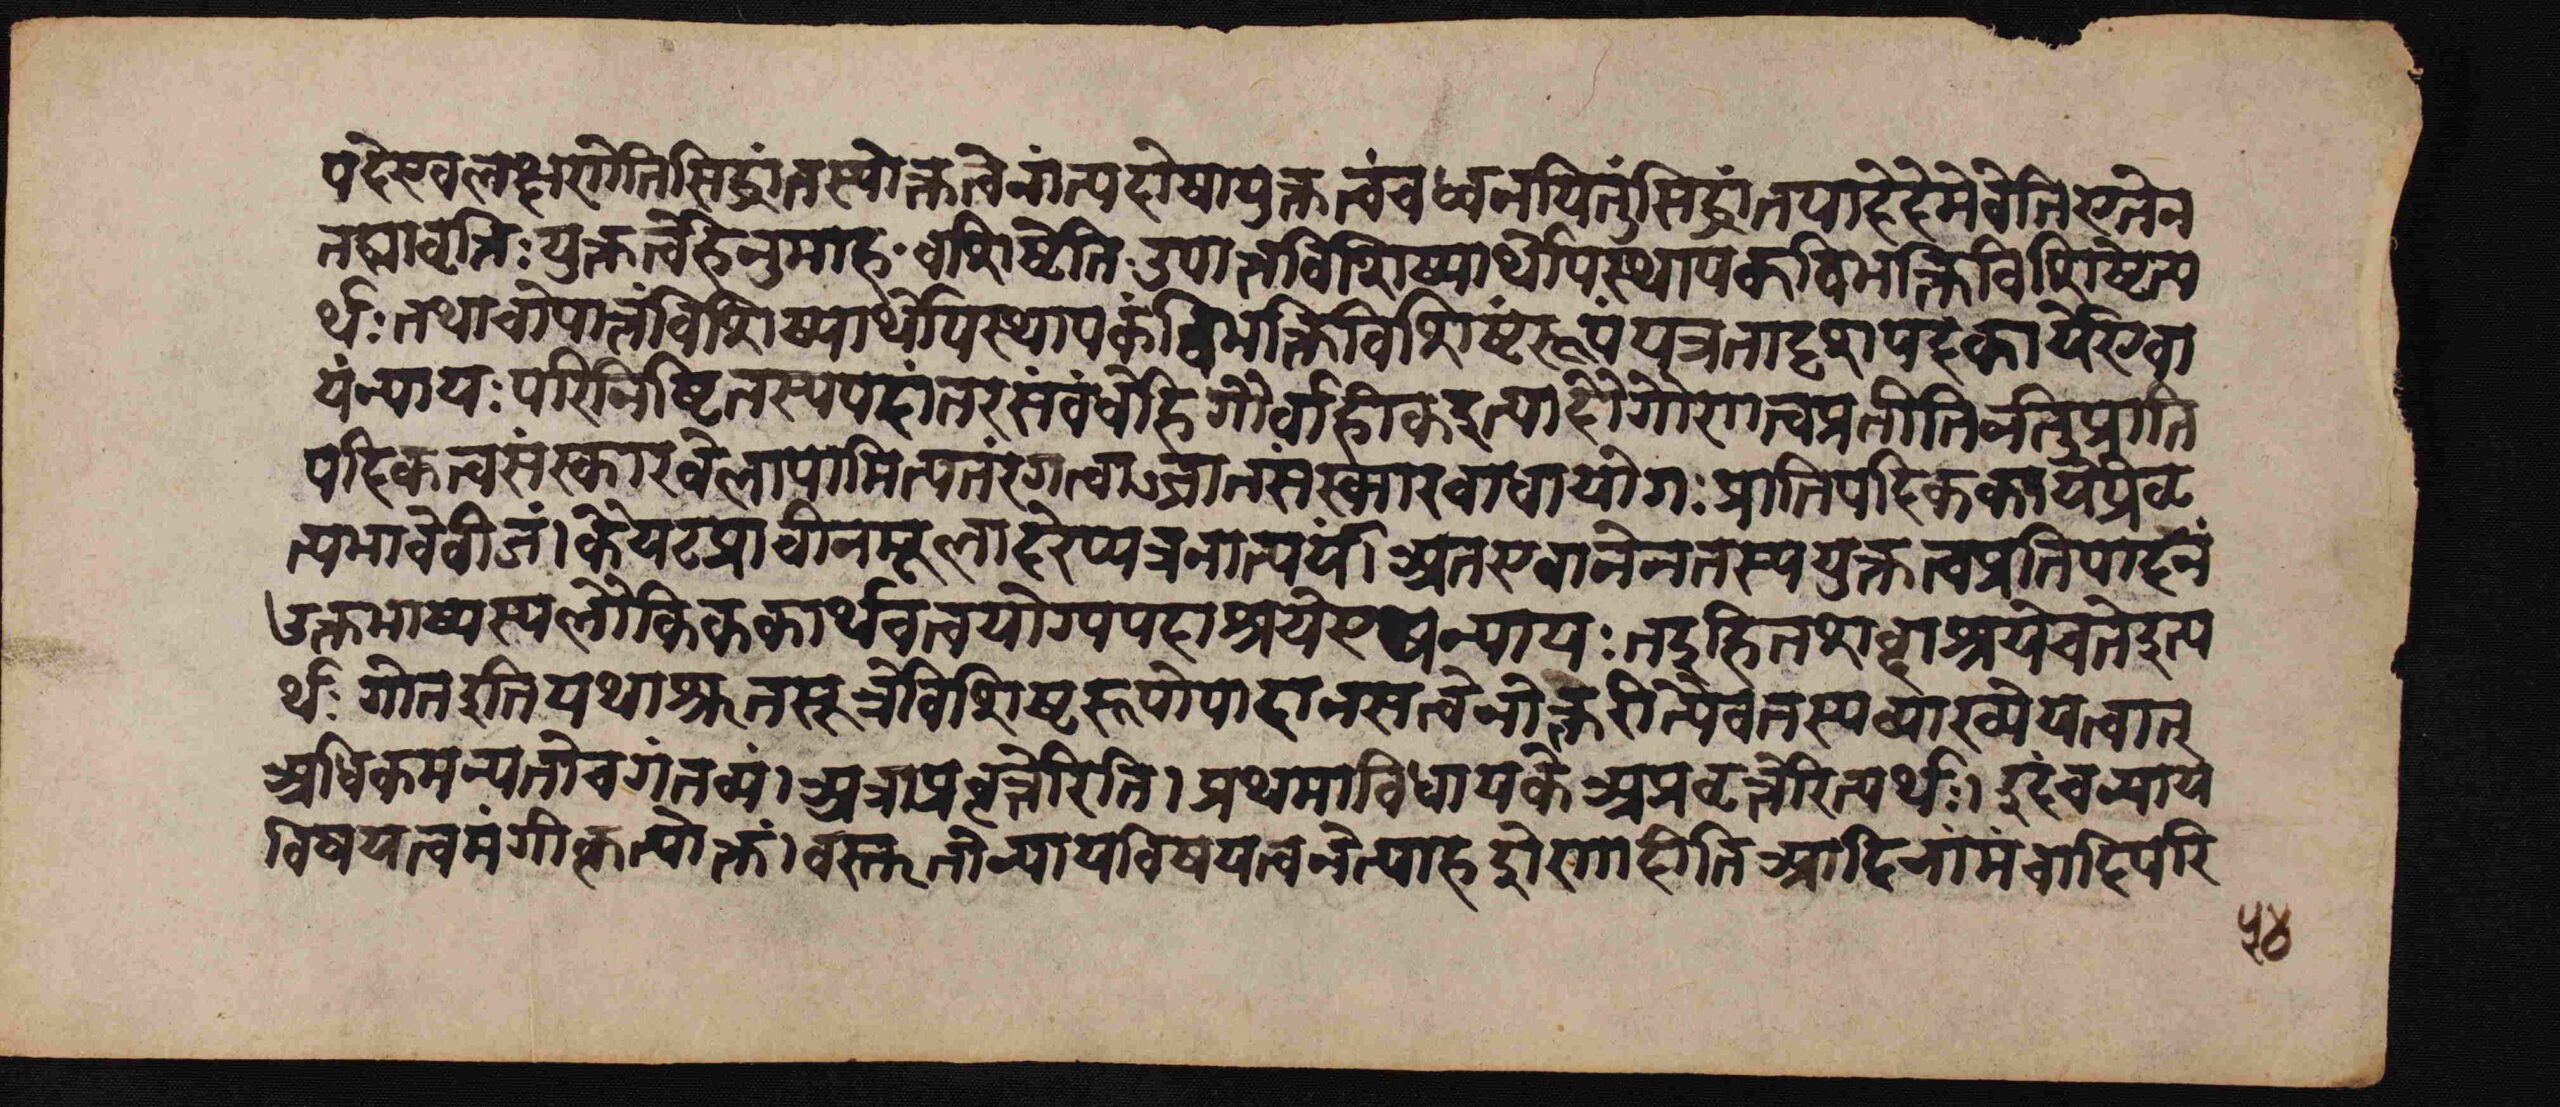 पदेएवलक्षणेतिसिद्धांतस्योक्तत्वेनांत्यदोषायुक्तत्वंचध्वनयितुंसिद्धांतयादेहेमेवेतिएतेन
तद्यावृत्तिः युक्तत्वेहेतुमाह॰ वशिष्टेति॰ उपात्तविशिष्यार्थोपस्थापकविभक्तिविशिष्टेत्य
र्थः तथाचोपात्तंविशिष्यार्थोपस्थापकंविभक्तिविशिष्टंरूपंयत्रतादृशपदकार्यएवा
यंन्यायः परिनिष्ठितस्यपदांतरसंबंधेहि गौर्वाहीकइत्यादौगौणत्वप्रतीतिर्नतुप्राति
पदिकत्वसंस्कारवेलायामित्यतंरंगत्वाज्जातसंस्कारबाधायोगः प्रातिपदिककार्येप्रवृ
त्यभावेबीजं। कैयटप्राचीनमूलादेरप्यत्रतात्पर्यं। अतएवानेनतस्ययुक्तत्वप्रतिपादनं
उक्तभाष्यस्यलौकिककार्थवत्वयोग्यपदाश्रयेएषन्यायः तद्रहितशब्दाश्रयेचतेइत्य
र्थः गोतइतियथाश्रुतसूत्रेविशिष्टरूपोपादानसत्वेनोक्तरीत्यैवतस्यव्याख्येयत्वात्
अधिकमन्यतोवगंतव्यं। अत्राप्रवृत्तेरिति। प्रथमाविधायकेअप्रवृत्तेरित्यर्थः। इदंचन्याय
विषयत्वमंगीकृत्योक्तं। वस्तुतोन्यायविषयत्वनेत्याह द्रोणादीति आदिनांमंचादिपरि
५४